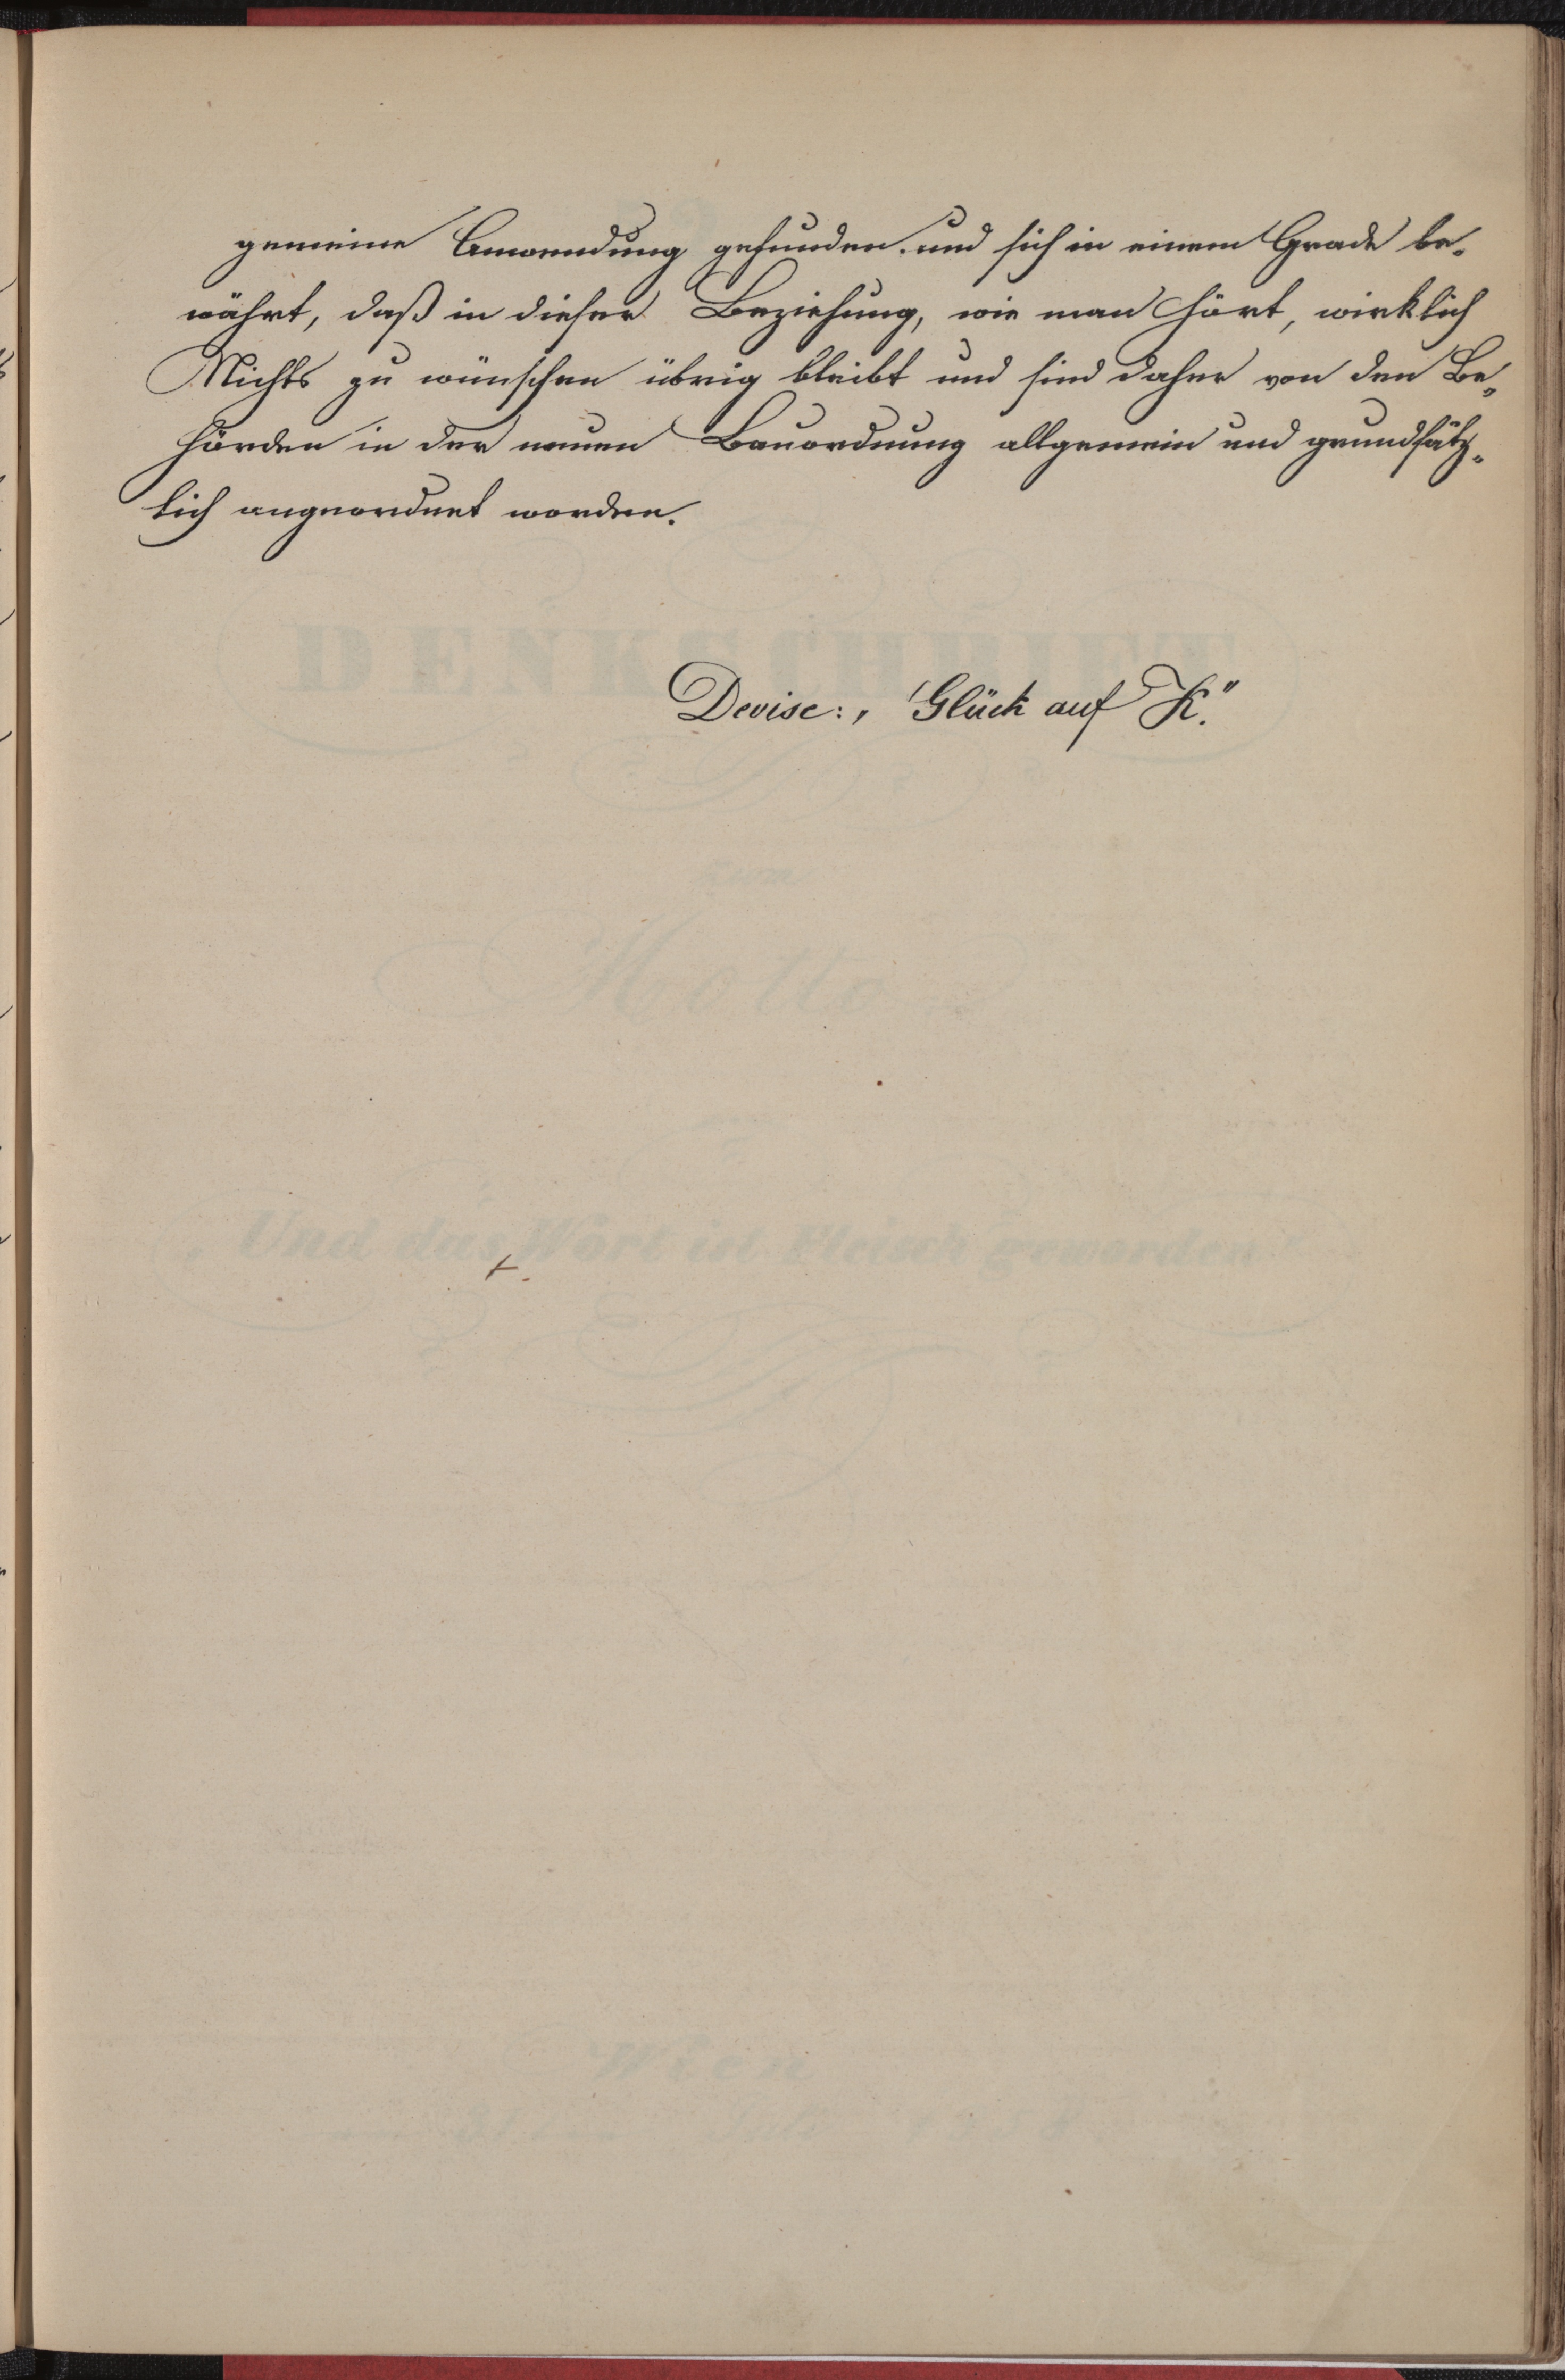 gemeine Anwendung gefunden und sich in einem Grade be-
währt, daß in dieser Beziehung, wie man hört, wirklich
Nichts zu wünschen übrig bleibt und sind daher von den Be-
hörden in der neuen Bauordnung allgemein und grundsätz-
lich angeordnet worden.
Devise: „Glück auf K."
DENKSCHRIFT
zum
Motto
„Und das Wort ist Fleisch geworden"
Wien